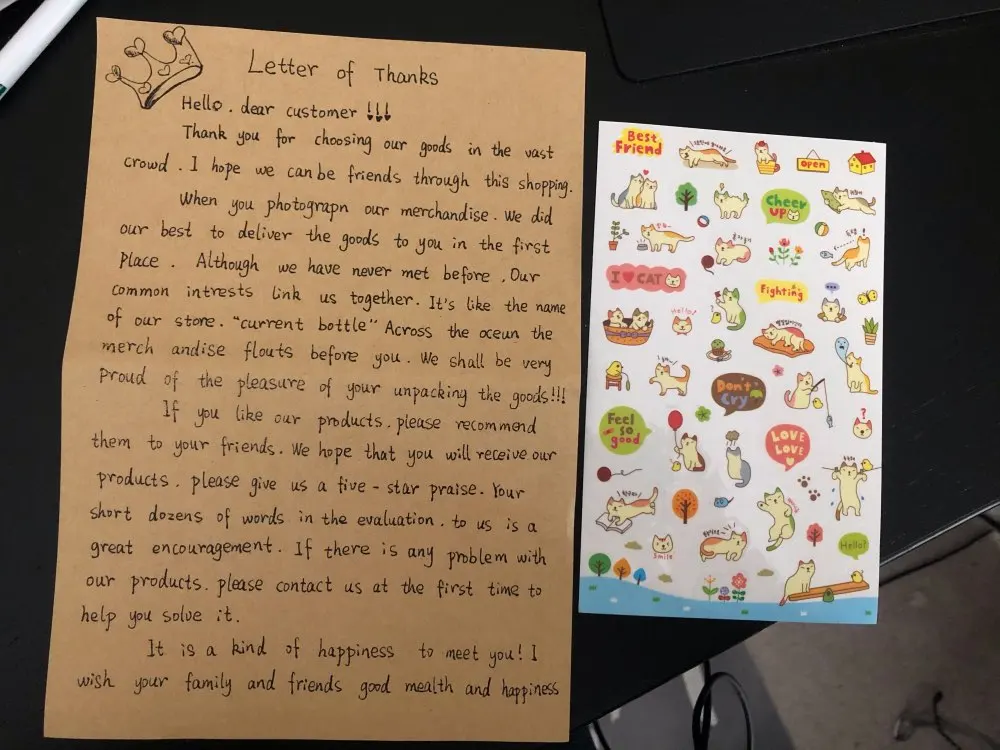 Letter of Thanks
Hello. dear customer !!!
Thank you for choosing our goods in the vast
crowd. I hope we can be friends through this shopping.
When you photograpn our merchandise. We did
our best to deliver the goods to you in the first
place. Although we have never met before. Our
common intrests link us together. It's like the name
of our store. "current bottle" Across the oceun the
merch andise flouts before you. We shall be very
proud of the pleasure of your unpacking the goods!!!
If you like our products. please recommend
them to your friends. We hope that you will receive our
products. please give us a five-star praise. Your
short dozens of words in the evaluation. to us is a
great encouragement. If there is any problem with
our products. please contact us at the first time to
help you solve it.
It is a kind of happiness to meet you! I
wish your family and friends good mealth and happiness
Best
Friend
open
Cheer
UP
I ♥ CAT
Hello!
Fighting
Don't
Cry
Feel
so
good
LOVE
LOVE
?
Smile
Hello!